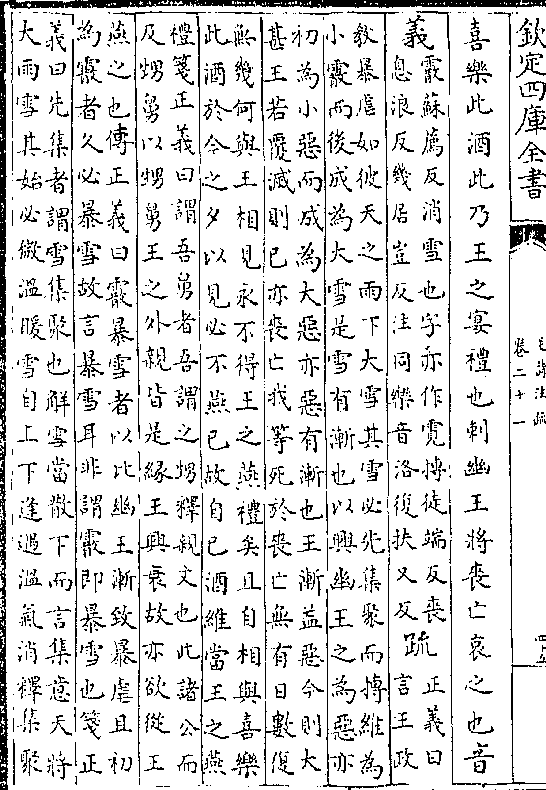 欽定四庫全書
毛詩注疏
卷二十一
喜樂此酒此乃王之宴禮也刺幽王將喪亡哀之也音
義霰蘇薦反消雪也字亦作霓摶徒端反喪
息浪反幾居豈反注同樂音洛復扶又反疏正義曰
言王政
教暴虐如彼天之雨下大雪其雪必先集聚而摶維為
小霰而後成為大雪是雪有漸也以興幽王之為惡亦
初為小惡而成為大惡亦惡有漸也王漸益惡今則大
甚王若覆滅則已亦喪亡我等死於喪亡無有日數復
無幾何與王相見永不得王之燕禮矣且自相與喜樂
此酒於今之夕以見必不燕已故自已酒維當王之燕
禮箋正義曰謂吾舅者吾謂之甥釋親文也此諸公而
及甥舅以甥舅王之外親皆是緣王興衰故亦欲從王
燕之也傳正義曰霰暴雪者以比幽王漸致暴虐且初
為霰者久必暴雪故言暴雪耳非謂霰即暴雪也箋正
義曰先集者謂雪集聚也解雪當散下而言集意天將
大雨雪其始必微溫暖雪自上下逢遇溫氣消釋集聚